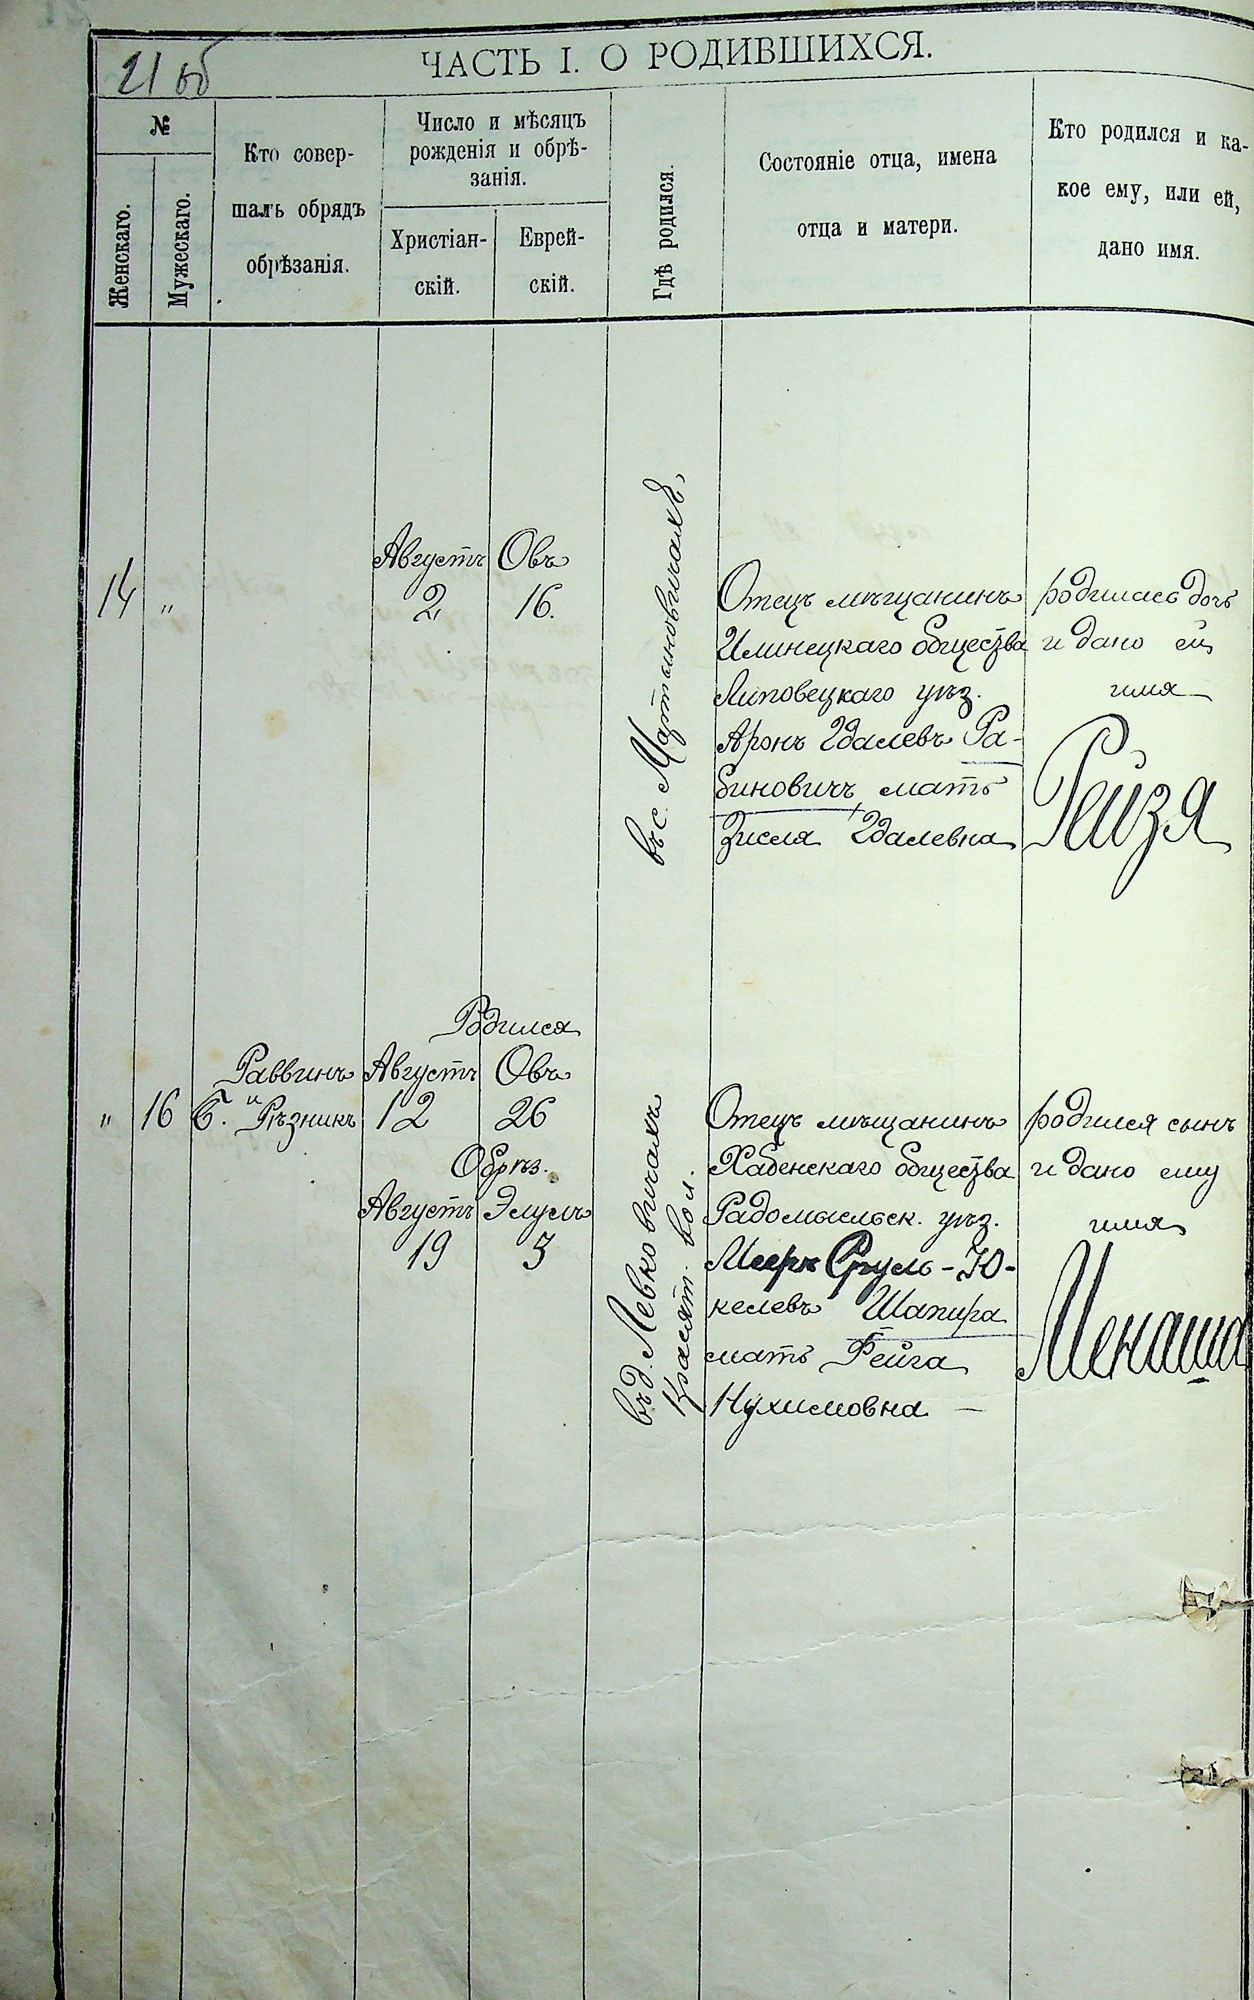 21 об
ЧАСТЬ I. О РОДИВШИХСЯ.
№
Женскаго.
Мужескаго.
Кто совер-
шалъ обрядъ
обрѣзанія.
Число и мѣсяцъ
рожденія и обрѣ-
занія.
Христіан-
скій.
Еврей-
скій.
Гдѣ родился.
Состояніе отца, имена
отца и матери.
Кто родился и ка-
кое ему, или ей,
дано имя.
14
"
Августъ
2
Овъ
16.
въ с. Мартыновичахъ
Отецъ мѣщанинъ
Илинецкаго общества
Липовецкаго уѣз.
Аронъ Эдалевъ Ра-
биновичъ, мать
Зисля Эдалевна
родилась дочь
и дано ей
имя
Рейзя
"
16
Раввинъ
Б. и Рѣзникъ
Родился
Августъ
12
Овъ
26
Обрѣз.
Августъ
19
Элулъ
3
въ д. Левковичахъ
Красят. вол.
Отецъ мѣщанинъ
Хабенскаго общества
Радомысльск. уѣз.
Мееръ Сруль-Ю-
келевъ Шапира
мать Фейга
Нухимовна —
родился сынъ
и дано ему
имя
Менаша